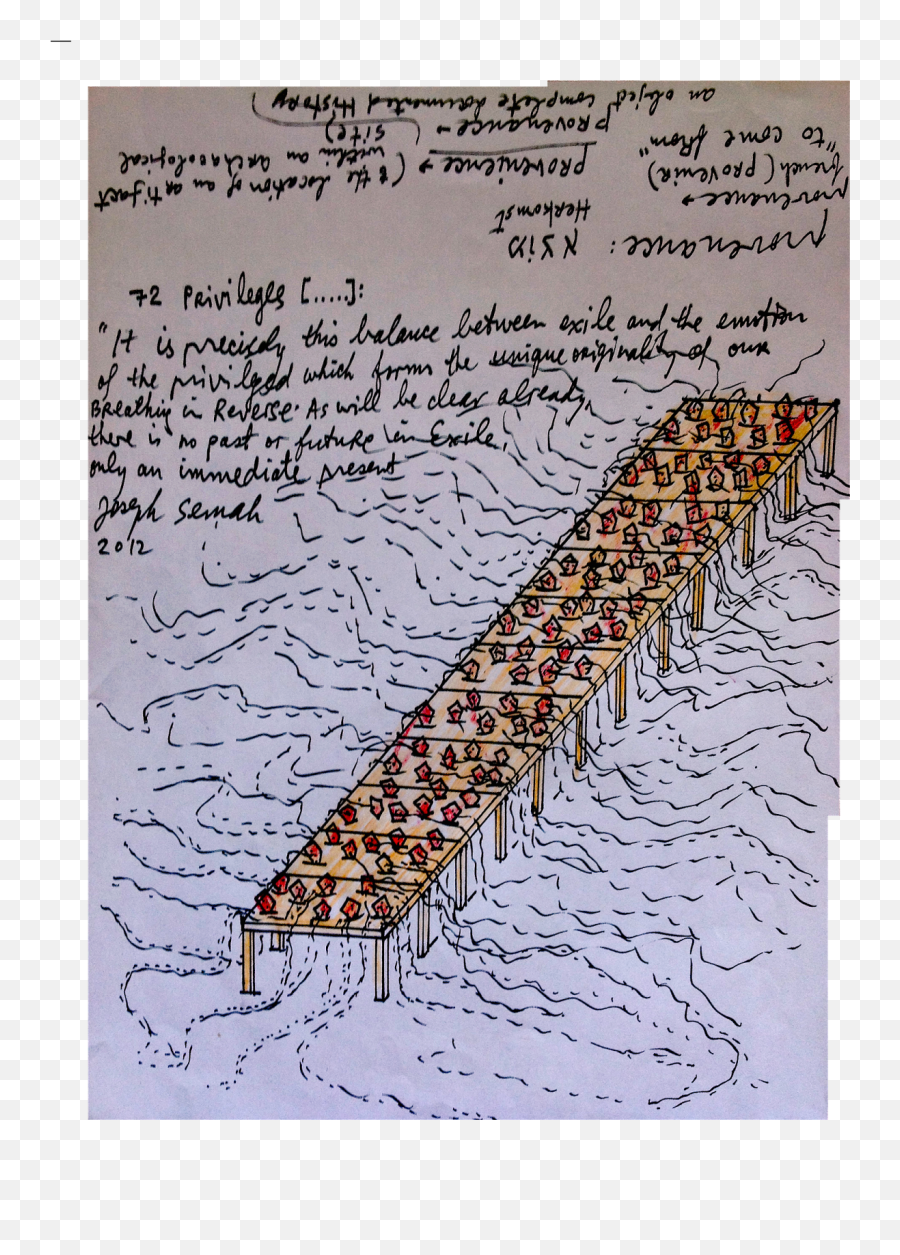 provenance: מוצא
Herkomst
provenance →
french (provenir)
"to come from"
provenience → (& the location of an artifact
within an archaeological
site)
provenance → 
an object complete documented History)
72 Privileges [.....]:
"It is precisely this balance between exile and the emotion
of the privileged which forms the unique originality of our
Breathing in Reverse. As will be clear already,
there is no past or future in Exile,
only an immediate present
Joseph Semah
2012